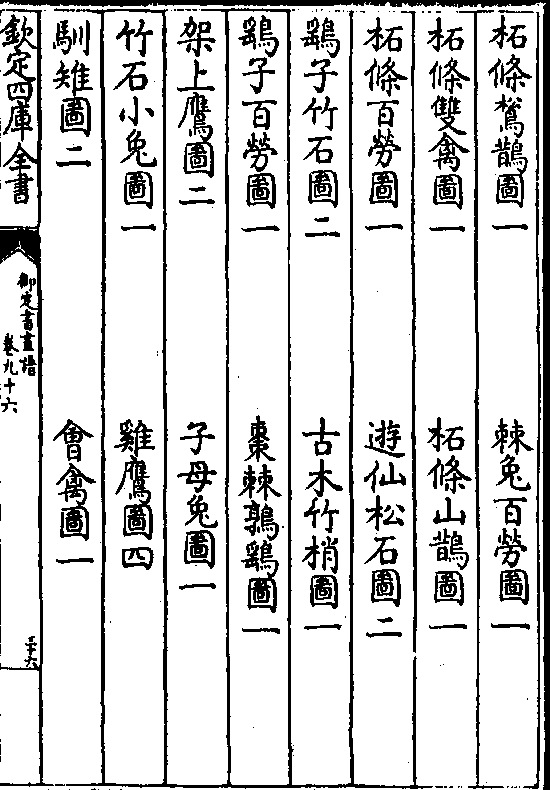 柘條鵲圖一　棘兔百勞圖一
柘條雙禽圖一　柘條山鵲圖一
柘條百勞圖一　遊仙松石圖二
鷃子竹石圖二　古木竹梢圖一
鷃子百勞圖一　棗棘鶉鷃圖一
架上鷹圖二　子母兔圖一
竹石小兔圖一　雞鷹圖四
馴雉圖二　會禽圖一
欽定四庫全書
御定書畫譜
卷九十六
三十六